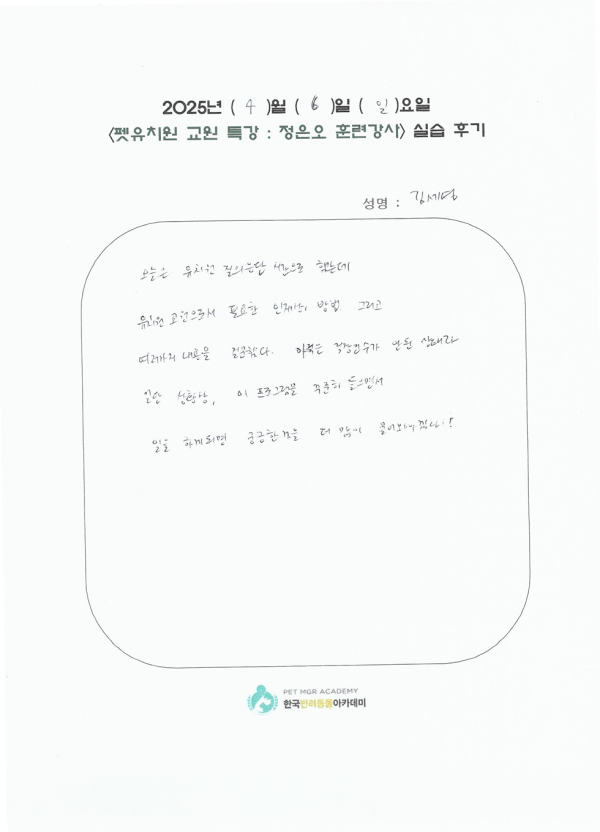 2025년 ( 4 )월 ( 6 )일 ( 일 )요일
<펫유치원 교원 특강 : 정은오 훈련강사> 실습 후기
성명 : 김세영
오늘은 유치원 질의응답 시간으로 했는데
유치원 교원으로서 필요한 인재상, 방법 그리고
여러가지 내용을 질문했다. 아직은 직장연수가 안된 상태라
일단 상황상, 이 프로그램을 꾸준히 들으면서
일을 하게되면 궁금한 것을 더 많이 물어봐야겠다!
PET MGR ACADEMY
한국반려동물아카데미